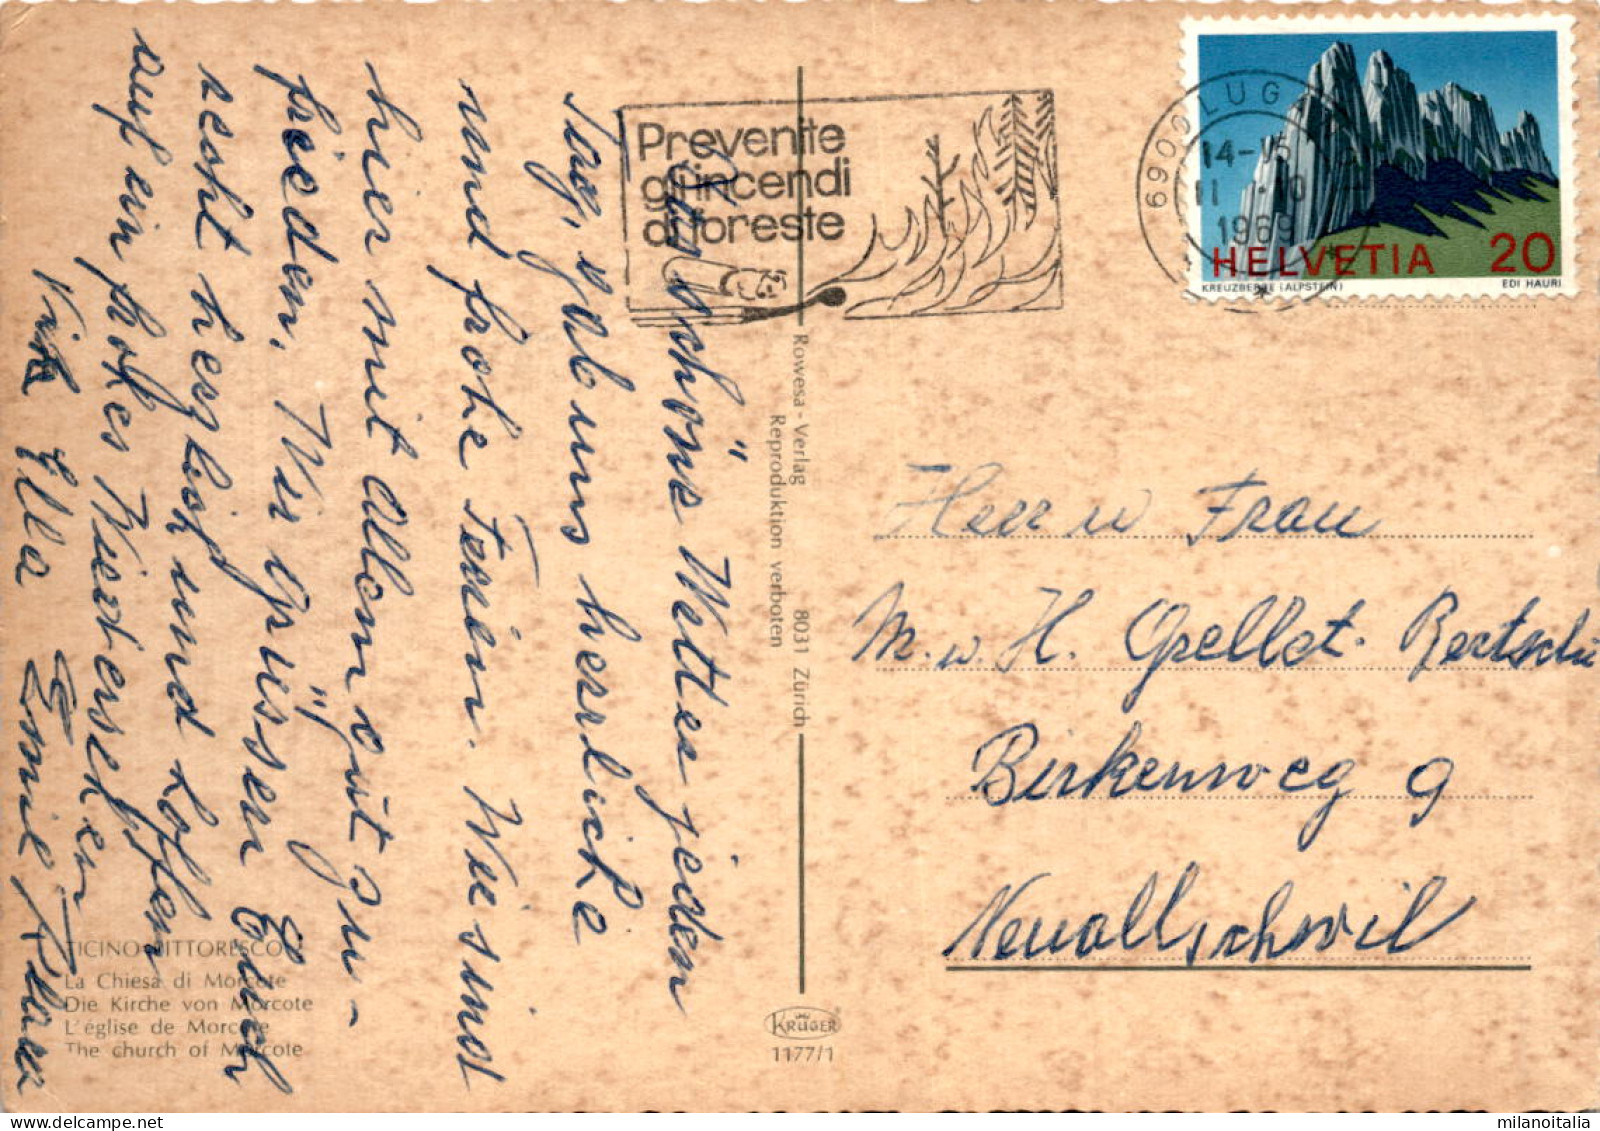 Das schöne Wetter jeden
Tag, gab uns herrliche
und frohe Ferien. Wir sind
hier mit Allem gut zu-
frieden. Wir grüssen Euch
recht herzlich und hoffen
auf ein frohes Wiedersehen
Ella Emil Klara
Prevenite
gl'incendi
di foreste
6900 LUG
14-15
1969
HELVETIA 20
KREUZBERGE (ALPSTEIN) EDI HAURI
Rowesa - Verlag 8031 Zürich
Reproduktion verboten
Herr u Frau
M. u. H. Grellet-Bertschi
Birkenweg 9
Neuallschwil
TICINO PITTORESCO
La Chiesa di Morcote
Die Kirche von Morcote
L'église de Morcote
The church of Morcote
KRÜGER
1177/1
milanoitalia